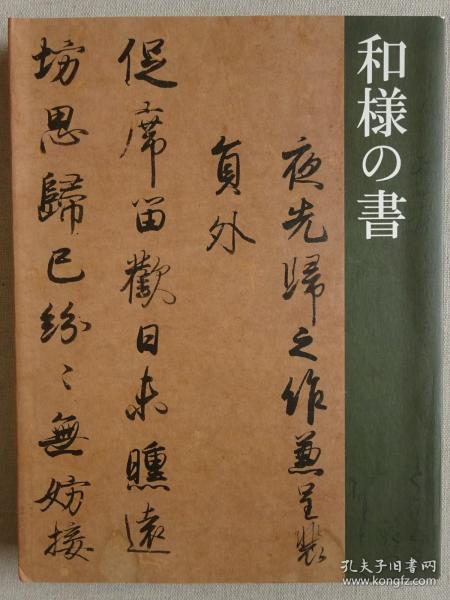 和様の書
夜先歸之作兼呈裴
員外
促席留歡日未曛遠
坊思歸已紛〻無妨接
孔夫子旧书网
www.kongfz.com